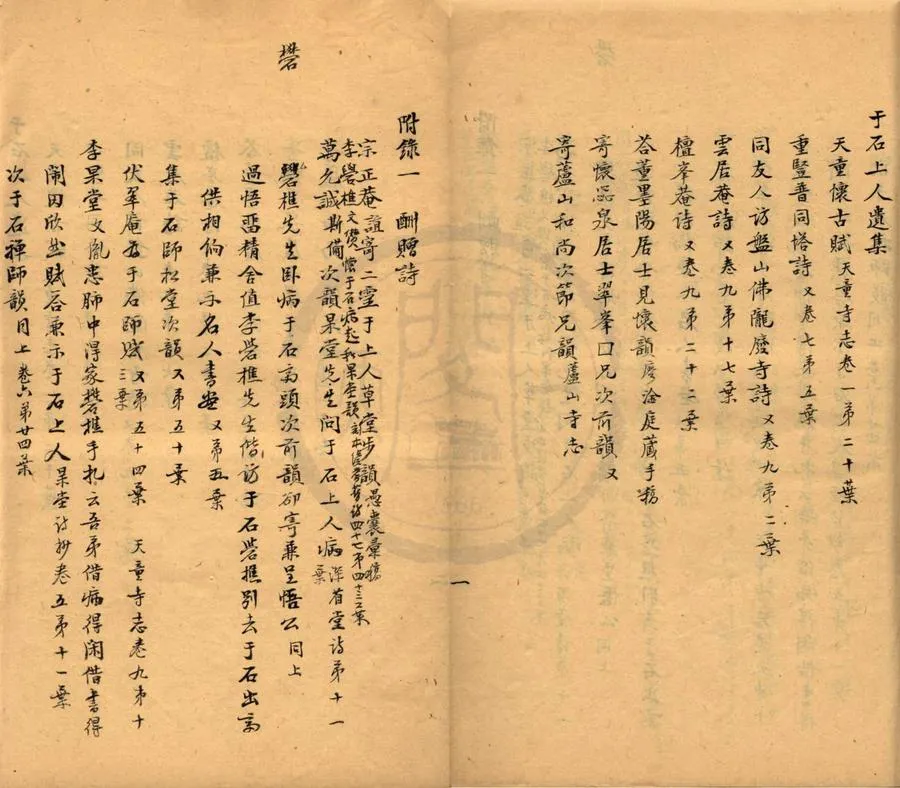 于石上人遺集
天童懷古賦 天童寺志卷一第二十葉
重豎普同塔詩 又卷七第五葉
同友人访盤山佛隴廢寺詩 又卷九第二葉
雲居庵詩 又卷九第十七葉
檀峯庵詩 又卷九第二十二葉
荅董墨陽居士見懷韻 蔵手稿
寄懷泉居士翠峯口兄次前韻 又
寄蘆山和尚次節兄韻 蘆山寺志
一
礐
附錄一 酬贈詩
宗正庵誼寄二靈于上人草堂步韻 愚囊彙稿
李礐樵文纘懷于石病起和杲堂韻 四十七第四十三葉
萬允誠斯備次韻杲堂先生问于石上人病 深省堂诗第十一葉
礐樵先生卧病于石高頭次前韻卻寄兼呈悟公 同上
過悟畱精舍值李礐樵先生偕访于石礐樵别去于石出高
供相餉兼示名人書画 又第五葉
集于石師松堂次韻 又第五十葉
伏翠庵于石師賦 又第五十四葉 天童寺志卷九第十三葉
李杲堂文胤患肺中得家礐樵手扎云吾弟借病得闲借书得
闹因欣然賦荅兼示于石上人 杲堂诗抄卷五第十一葉
次于石禪師韻 同上卷六第廿四葉